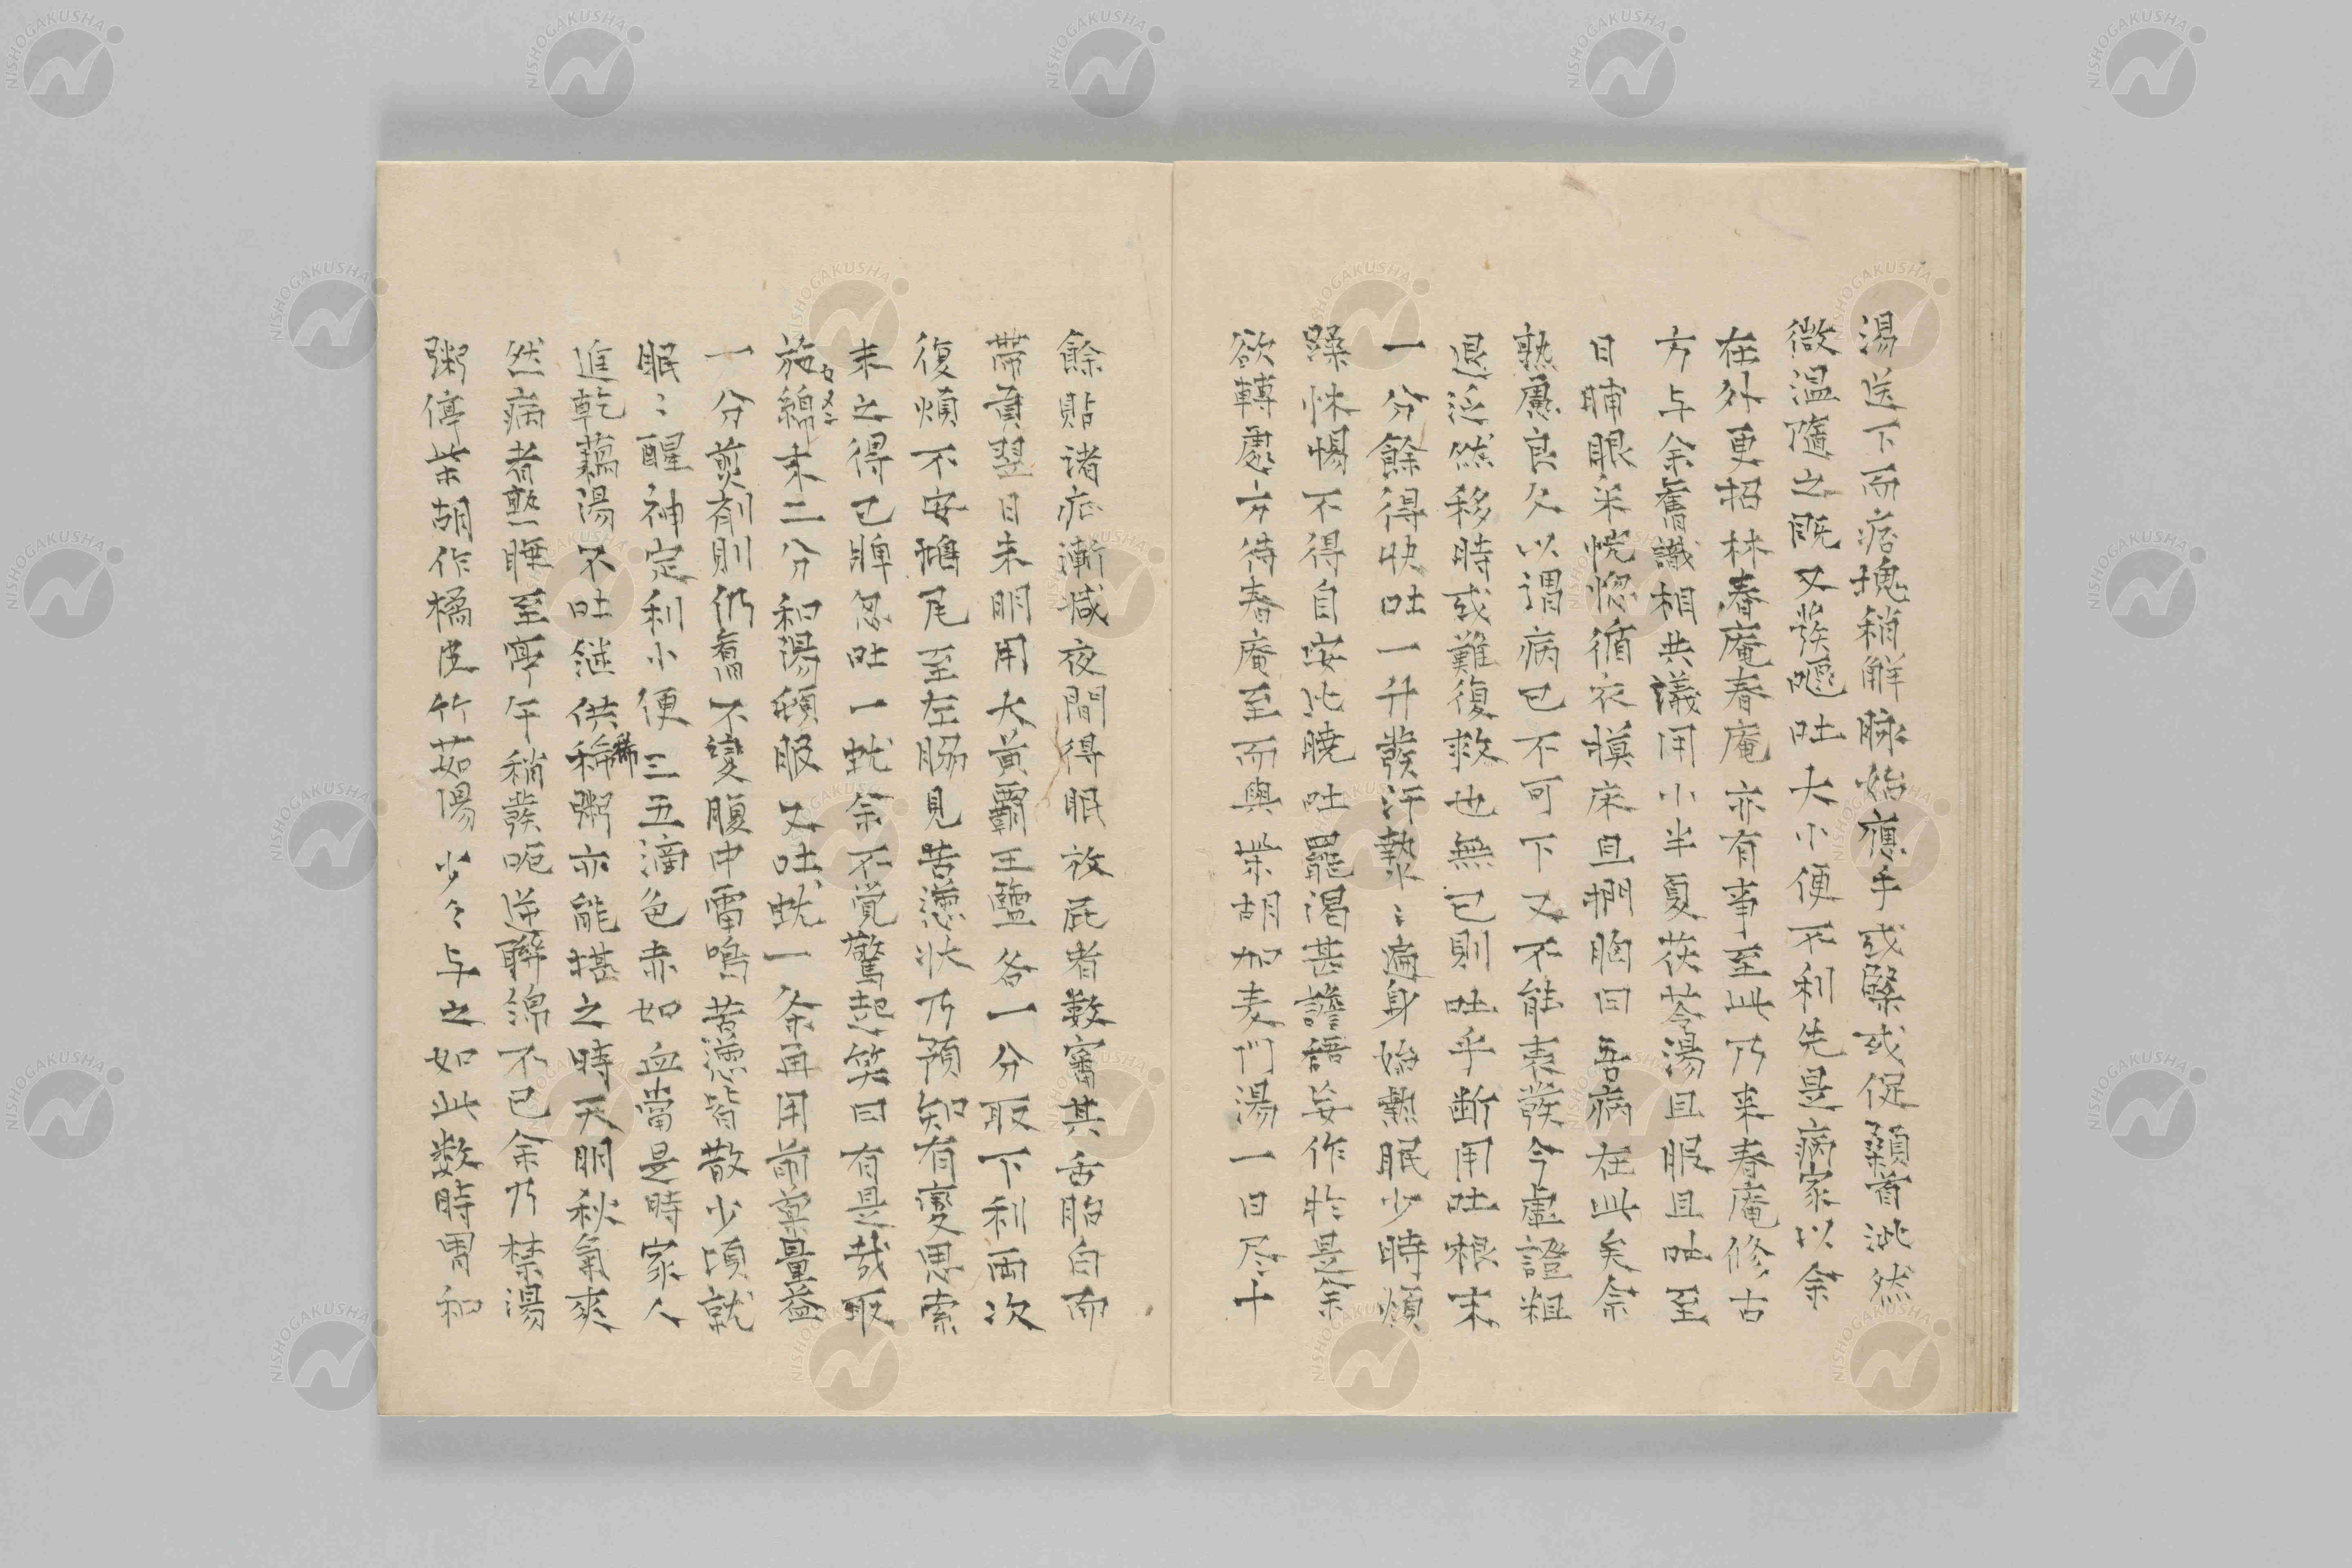 湯送下而痞塊稍解脉始應手或緊或促顙首泚然
微温隨之既又發嘔吐大小便不利先是病家以余
在外更招林春庵春庵亦有事至此乃来春庵修古
方与余舊識相共議用小半夏茯苓湯且服且吐至
日晡眼采恍惚循衣摸床且捫胸曰吾病在此矣余
熟慮良久以謂病已不可下又不能表發今虚證粗
退泛然移時或難復救也無已則吐乎断用吐根末
一分餘得快吐一升發汗漐〻遍身始熱眠少時煩
躁怵惕不得自安比曉吐罷渇甚譫語妄作於是余
欲轉處方待春庵至而與柴胡加麦門湯一日尽十
餘貼诸症漸减夜間得眠放屁者数審其舌胎白而
帶黄翌日未明用大黄覇王鹽各一分取下利両次
復煩不安鳩尾至左胁見苦懣状乃預知有變思索
未之得已睥忽吐一蚘余不覚驚起笑曰有是哉取
施綿末二分和湯頓服又吐蚘一条再用前藥量益
セメン
一分煎剤則仍舊不變腹中雷鳴苦懣皆散少頃就
眠〻醒神定利小便三五滴色赤如血當是時家人
進乾藕湯不吐継供稀粥亦能堪之時天明秋氣爽
然病者熟睡至寧午稍發呃逆聯綿不已余乃禁湯
粥停柴胡作橘皮竹茹湯少々与之如此数時胃和
NISHOGAKUSHA